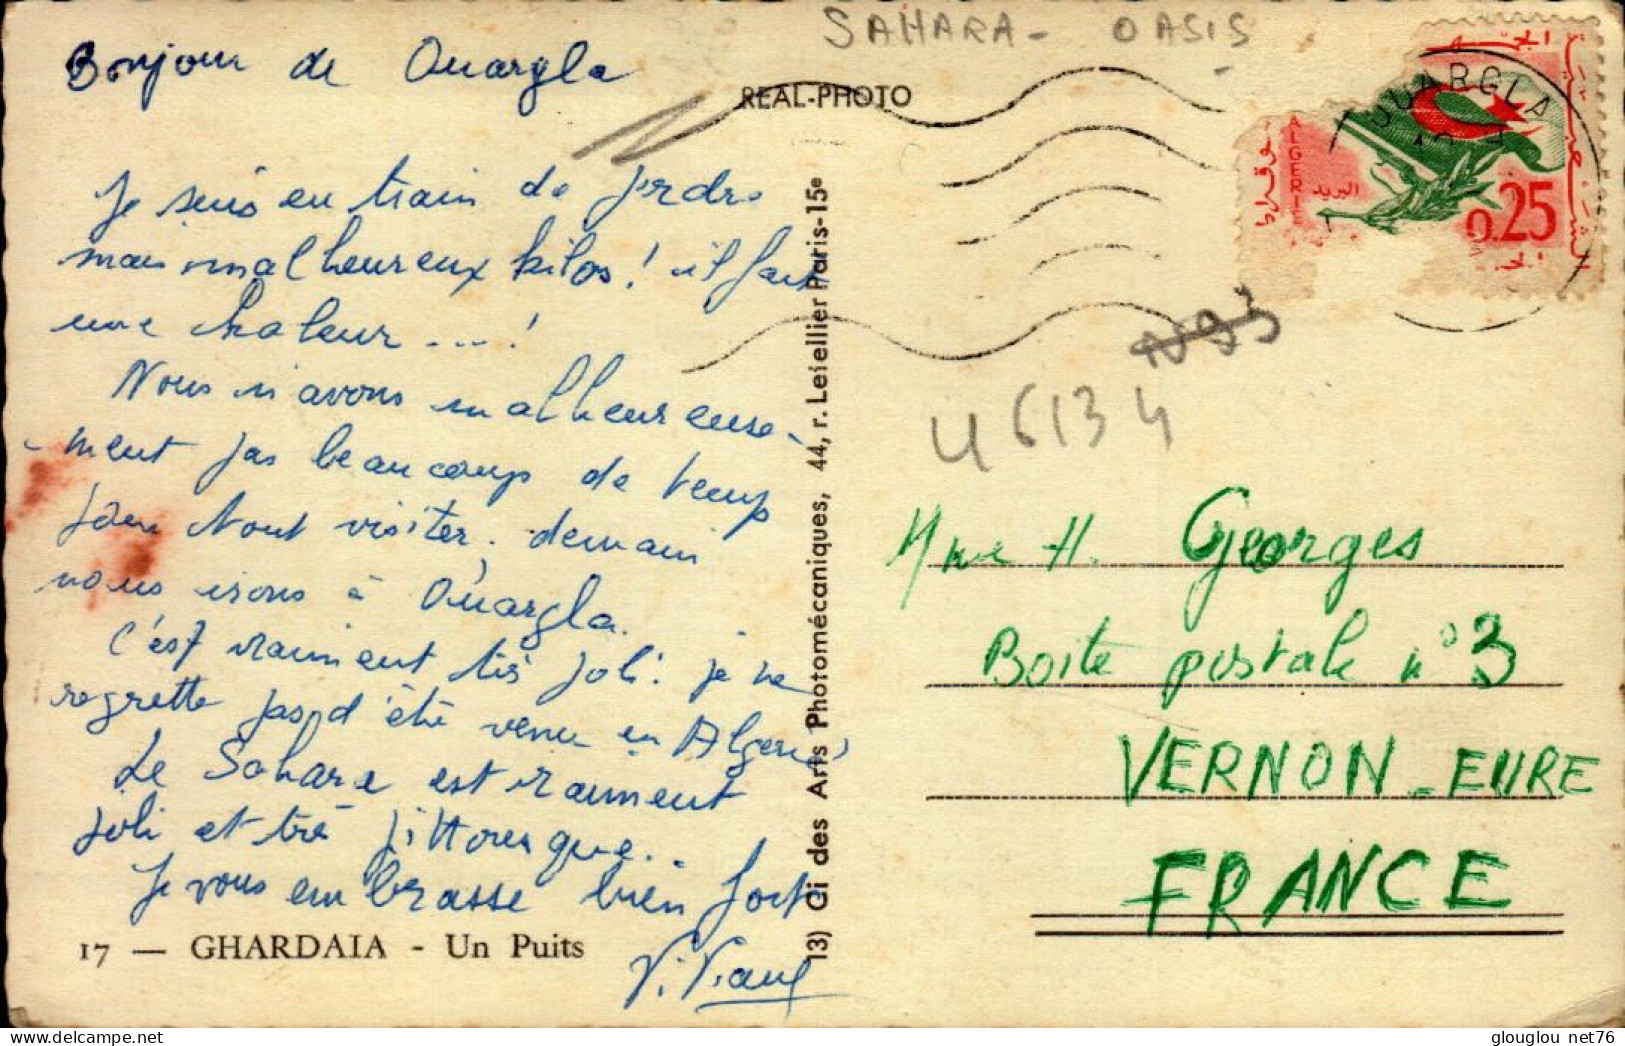 SAHARA - OASIS
Bonjour de Ouargla
REAL-PHOTO
Je suis en train de perdre
mais malheureux kilos ! il fait
une chaleur .... !
Nous n'avons malheureuse-
ment pas beaucoup de temps
pour tout visiter. demain
nous irons à Ouargla.
C'est vraiment très joli. je ne
regrette pas d'être venue en Algérie
Le Sahara est vraiment
joli et très pittoresque..
Je vous embrasse bien fort
Viviane
17 — GHARDAIA - Un Puits
13) Ci des Arts Photomécaniques, 44, r. Letellier Paris-15e
OUARGLA
ALGERIE
البريد
0.25
N93
46134
Mme H. Georges
Boite postale n°3
VERNON - EURE
FRANCE
glouglou net76